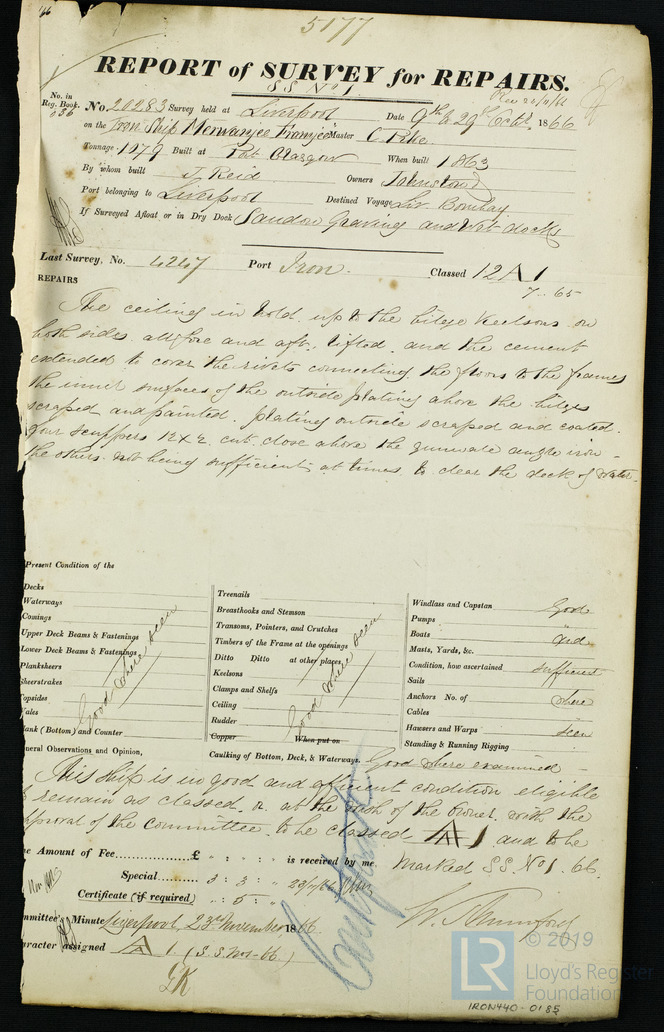 5177
REPORT of SURVEY for REPAIRS.
S.S. No 1.
No. in Reg. Book. No. 20283 Survey held at Liverpool Date 9th & 29th Octbr 1866
on the Iron Ship Merwanjee Framjee Master C Pike
Tonnage 1279 Built at Port Glasgow When built 1863
By whom built J. Reid Owners
Port belonging to Liverpool Destined Voyage Liv. Bombay
If Surveyed Afloat or in Dry Dock Sandon Graving and Wet docks
Last Survey, No. 4247 Port Iron. Classed 12 A 1
7..65
REPAIRS
The ceiling in hold up to the bilge Keelsons on
both sides all fore and aft lifted and the cement
extended to cover the rivets connecting the floors to the frames
the inner surfaces of the outside plating above the bilges
scraped and painted. plating outside scraped and coated.
four scuppers 12 x 2 cut close above the gunwale angle iron -
the others not being sufficient at times to clear the deck of water.
Present Condition of the
Decks
Waterways
Comings
Upper Deck Beams & Fastenings
Lower Deck Beams & Fastenings
Planksheers
Sheerstrakes
Topsides
Wales
Plank (Bottom) and Counter
Good where seen
Treenails
Breasthooks and Stemson
Transoms, Pointers, and Crutches
Timbers of the Frame at the openings
Ditto Ditto at other places,
Keelsons
Clamps and Shelfs
Ceiling
Rudder
Copper When put on
Good where seen
Caulking of Bottom, Deck, & Waterways. Good where examined -
Windlass and Capstan Good
Pumps
Boats and
Masts, Yards, &c.
Condition, how ascertained sufficient
Sails
Anchors No. of where
Cables
Hausers and Warps seen
Standing & Running Rigging
General Observations and Opinion,
This ship is in good and efficient condition eligible
to remain as classed or at the wish of the Owner with the
approval of the committee to be classed A 1 and to be
marked S.S. No 1. 66.
The Amount of Fee £ " : " : " is received by me,
Special 3 : 3 : " 23/11/66
Certificate (if required) " : 5 : "
Committee's Minute Liverpool, 23rd November 1866.
Character assigned A 1. (S.S. No 1 - 66)
LR
© 2019
Lloyd's Register
Foundation
IRON440-0185